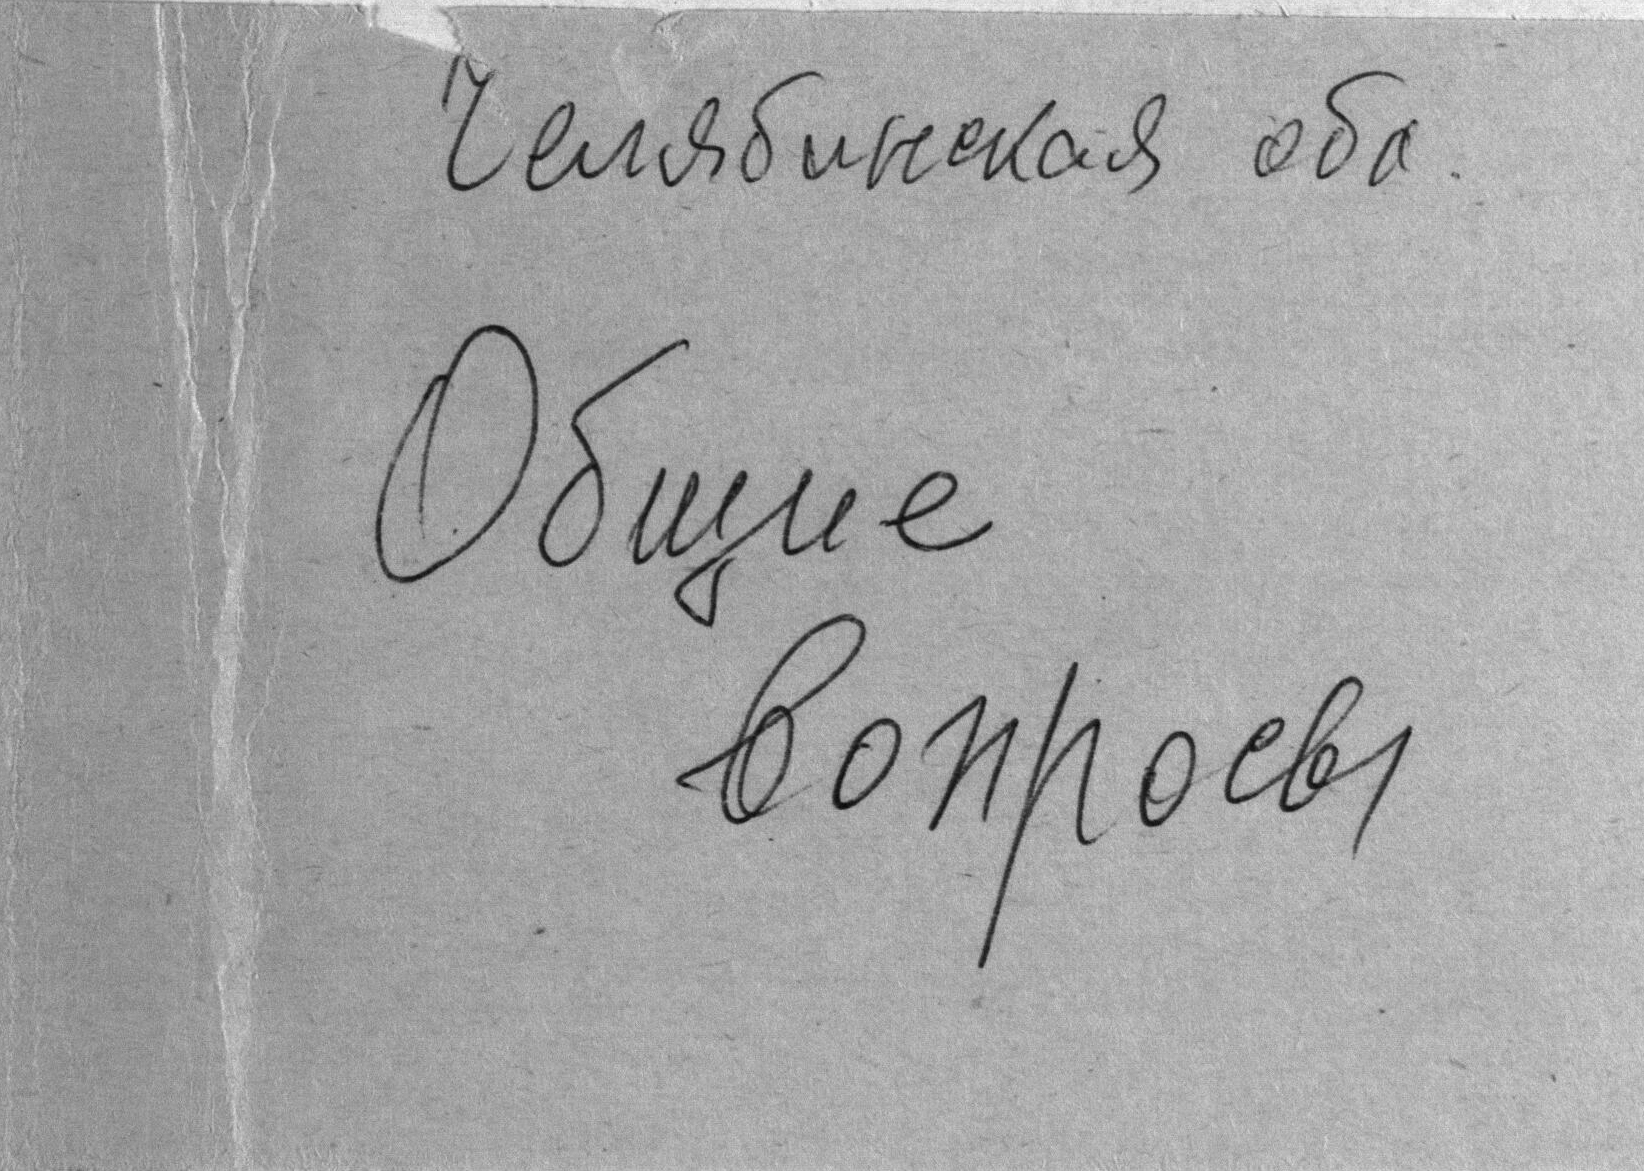 Челябинская обл.
Общие
вопросы